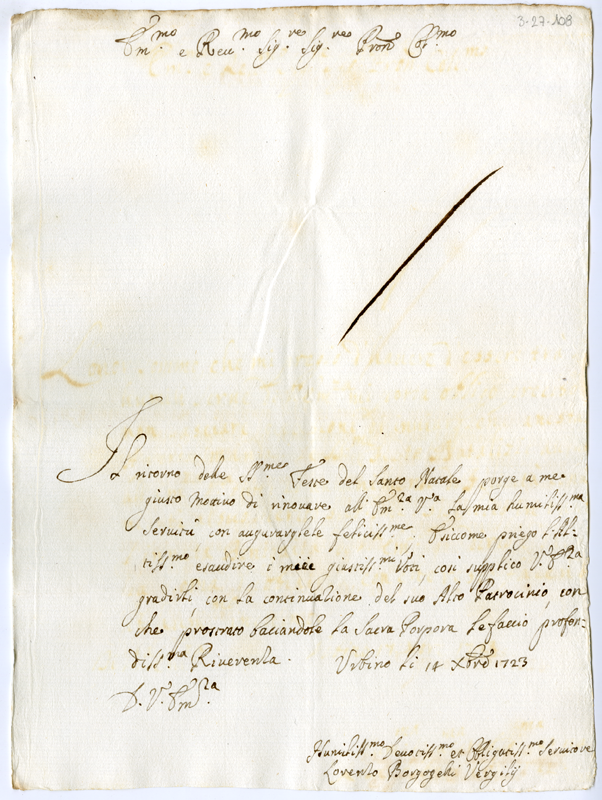 3-27-108
Em.mo e Rev.mo Sig.re Sig.re Pron Col.mo
Il ritorno delle SS.me Feste del Santo Natale porge a me
giusto motivo di rinovare all' Em.za V.a la mia humiliss.ma
servitù con augurargliele feliciss.me. E siccome priego l'Al-
tiss.mo esaudire i miei giustiss.mi Voti, così supplico V. Em.za
gradirli, con la continuazione del suo Alto Patrocinio, con
che prostrato baciandole la Sacra Porpora le faccio profon-
diss.ma Riverenza. Urbino li 14 Xbre 1723
D. V. Em.za
Humiliss.mo Devotiss.mo et Obligatiss.mo Servitore
Lorenzo Vergilij